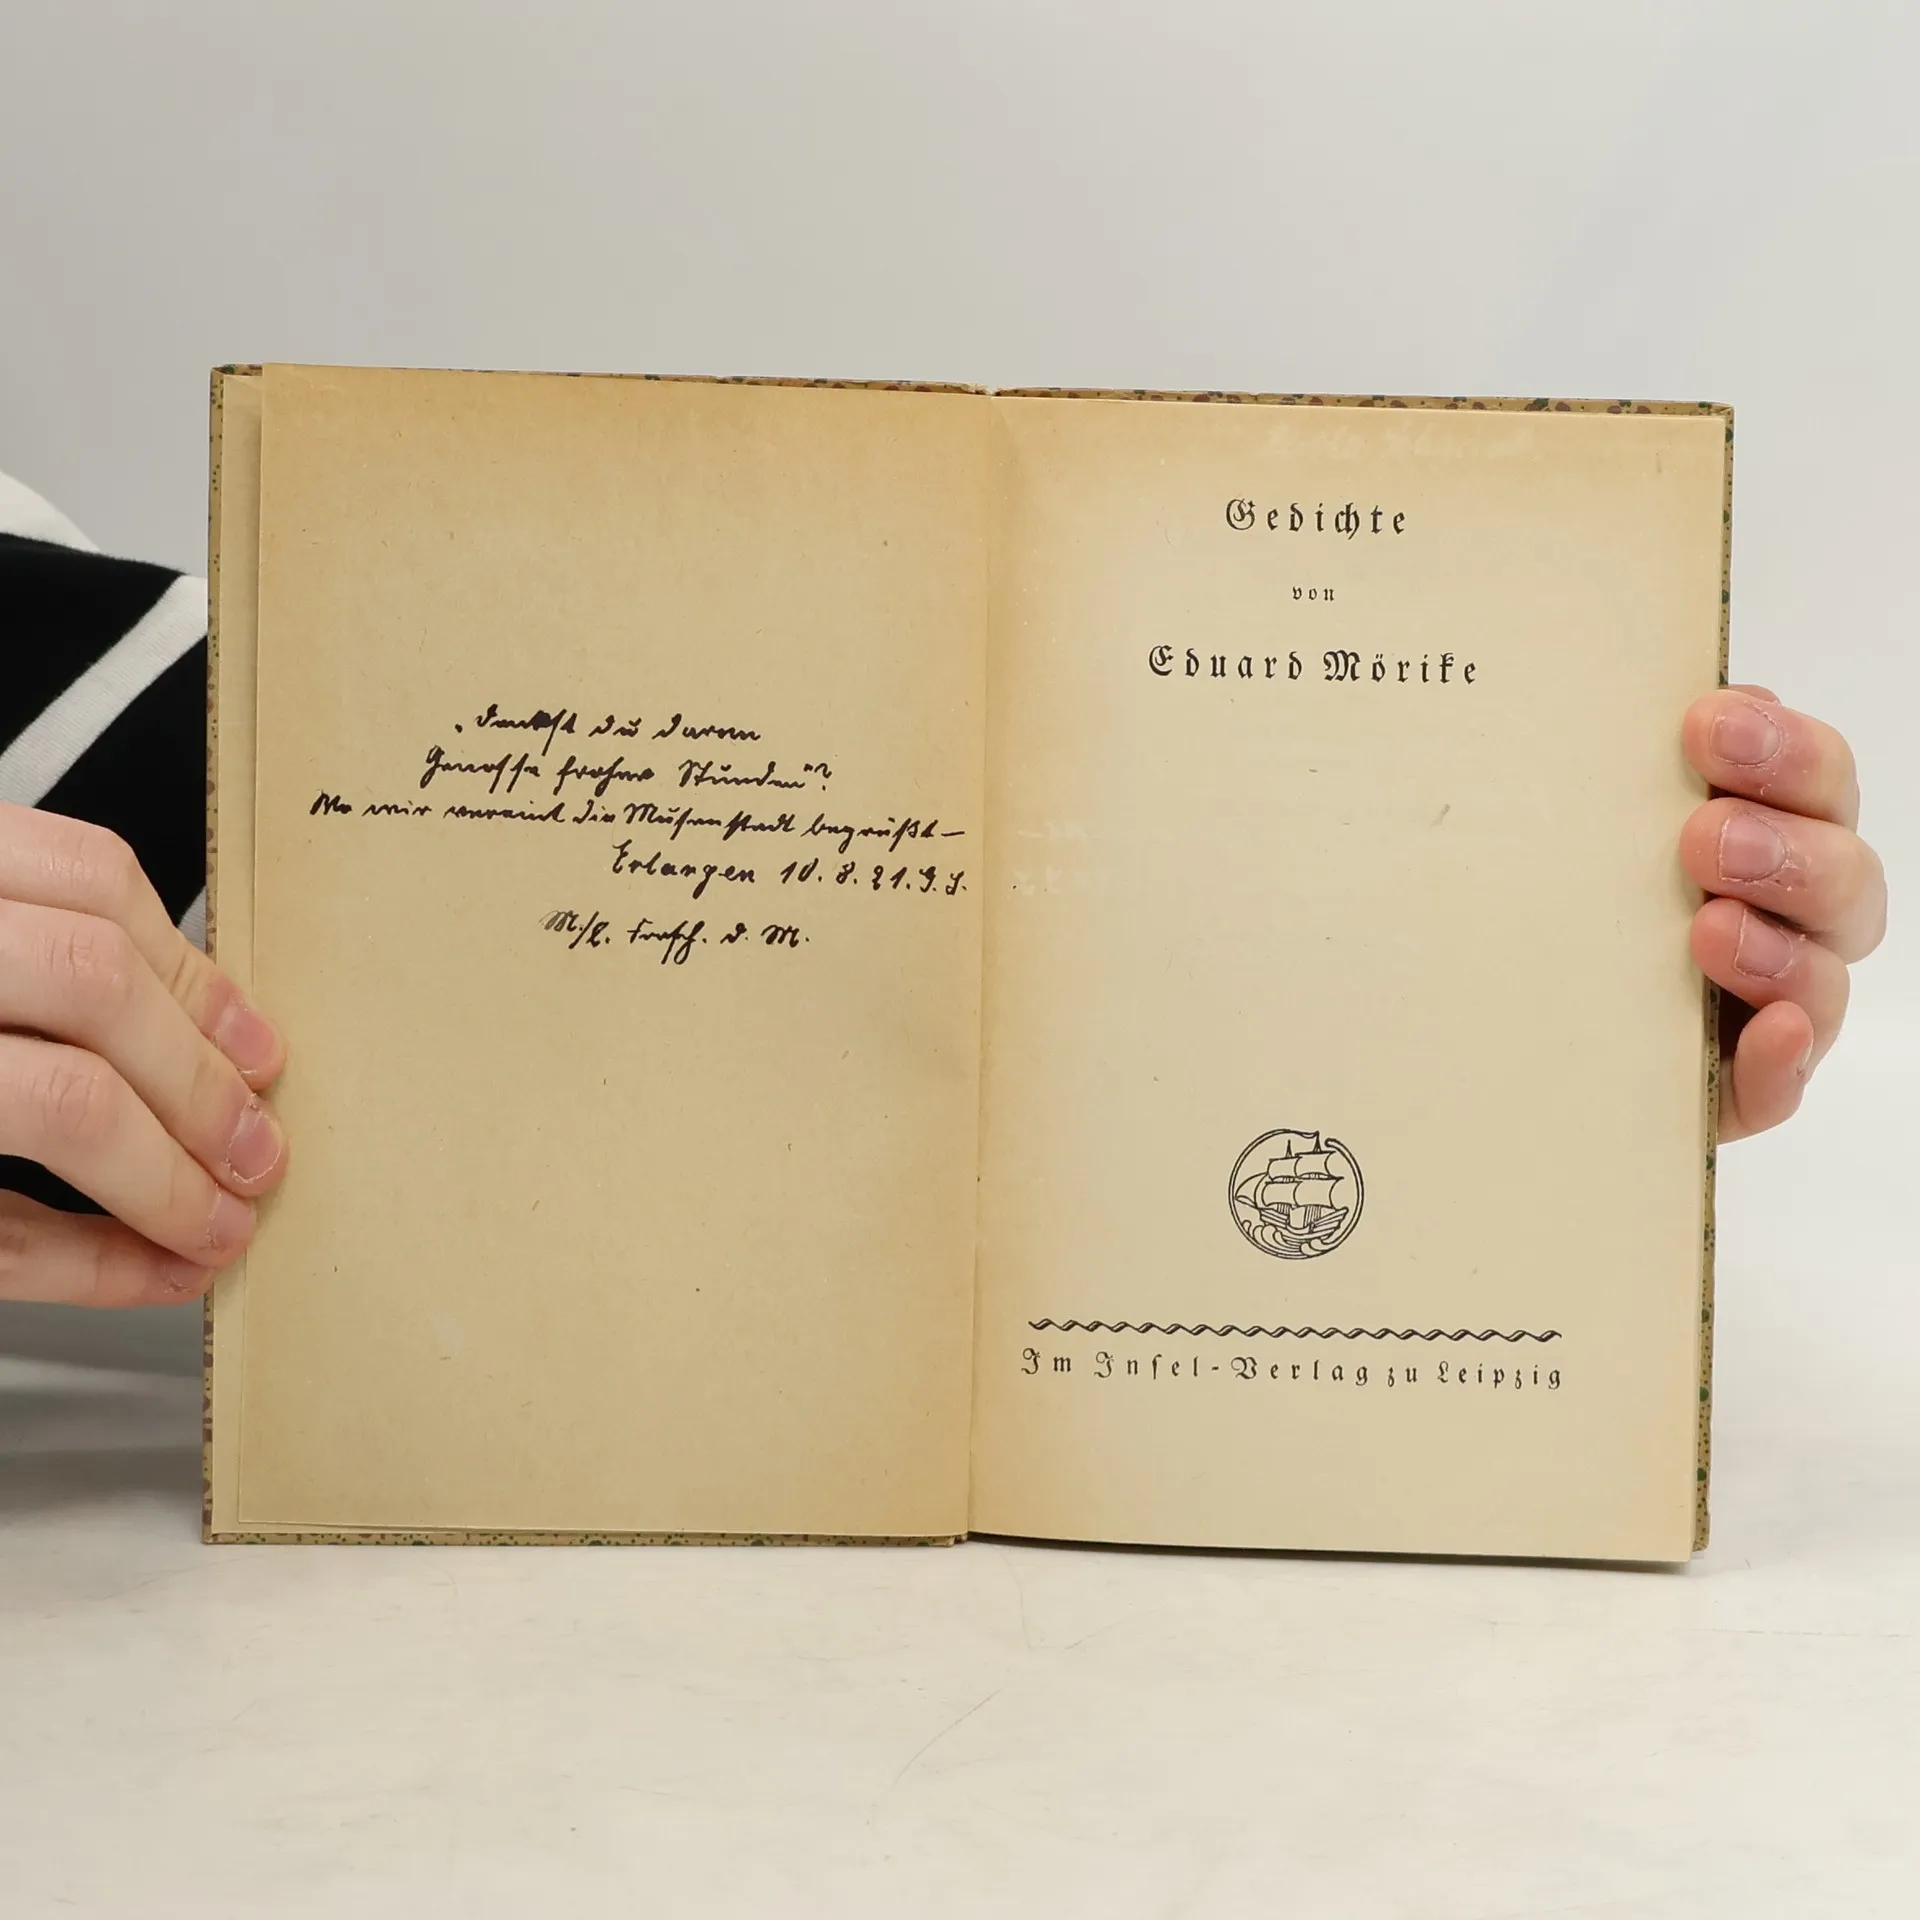 „Denkst du daran
Genosse froher Stunden"?
Wo wir vereint die Musenstadt begrüßt —
Erlangen 10. 8. 21.
M./E. d. M.
Gedichte
von
Eduard Mörike
Im Insel-Verlag zu Leipzig